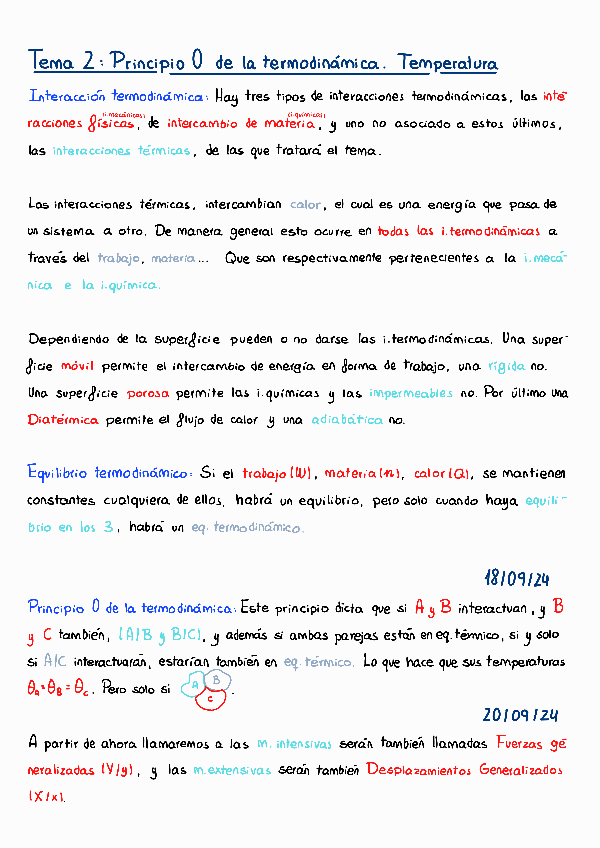 Tema 2: Principio 0 de la termodinámica. Temperatura
Interacción termodinámica: Hay tres tipos de interacciones termodinámicas, las inte-
(i.mecánicas) (i.químicas)
racciones físicas, de intercambio de materia, y uno no asociado a estos últimos,
las interacciones térmicas, de las que tratará el tema.
Las interacciones térmicas, intercambian calor, el cual es una energía que pasa de
un sistema a otro. De manera general esto ocurre en todas las i.termodinámicas a
través del trabajo, materia... Que son respectivamente pertenecientes a la i.mecá-
nica e la i.química.
Dependiendo de la superficie pueden o no darse las i.termodinámicas. Una super-
ficie móvil permite el intercambio de energía en forma de trabajo, una rígida no.
Una superficie porosa permite las i.químicas y las impermeables no. Por último una
Diatérmica permite el flujo de calor y una adiabática no.
Equilibrio termodinámico: Si el trabajo (W), materia (n), calor (Q), se mantienen
constantes cualquiera de ellos, habrá un equilibrio, pero solo cuando haya equili-
brio en los 3, habrá un eq. termodinámico.
18/09/24
Principio 0 de la termodinámica: Este principio dicta que si A y B interactuan, y B
y C también, (A/B y B/C), y además si ambas parejas están en eq. térmico, si y solo
si A/C interactuarán, estarían también en eq. térmico. Lo que hace que sus temperaturas
θA=θB=θC. Pero solo si A B C.
20/09/24
A partir de ahora llamaremos a las m. intensivas serán también llamadas Fuerzas ge-
neralizadas (Y/y), y las m.extensivas serán también Desplazamientos Generalizados
(X/x).